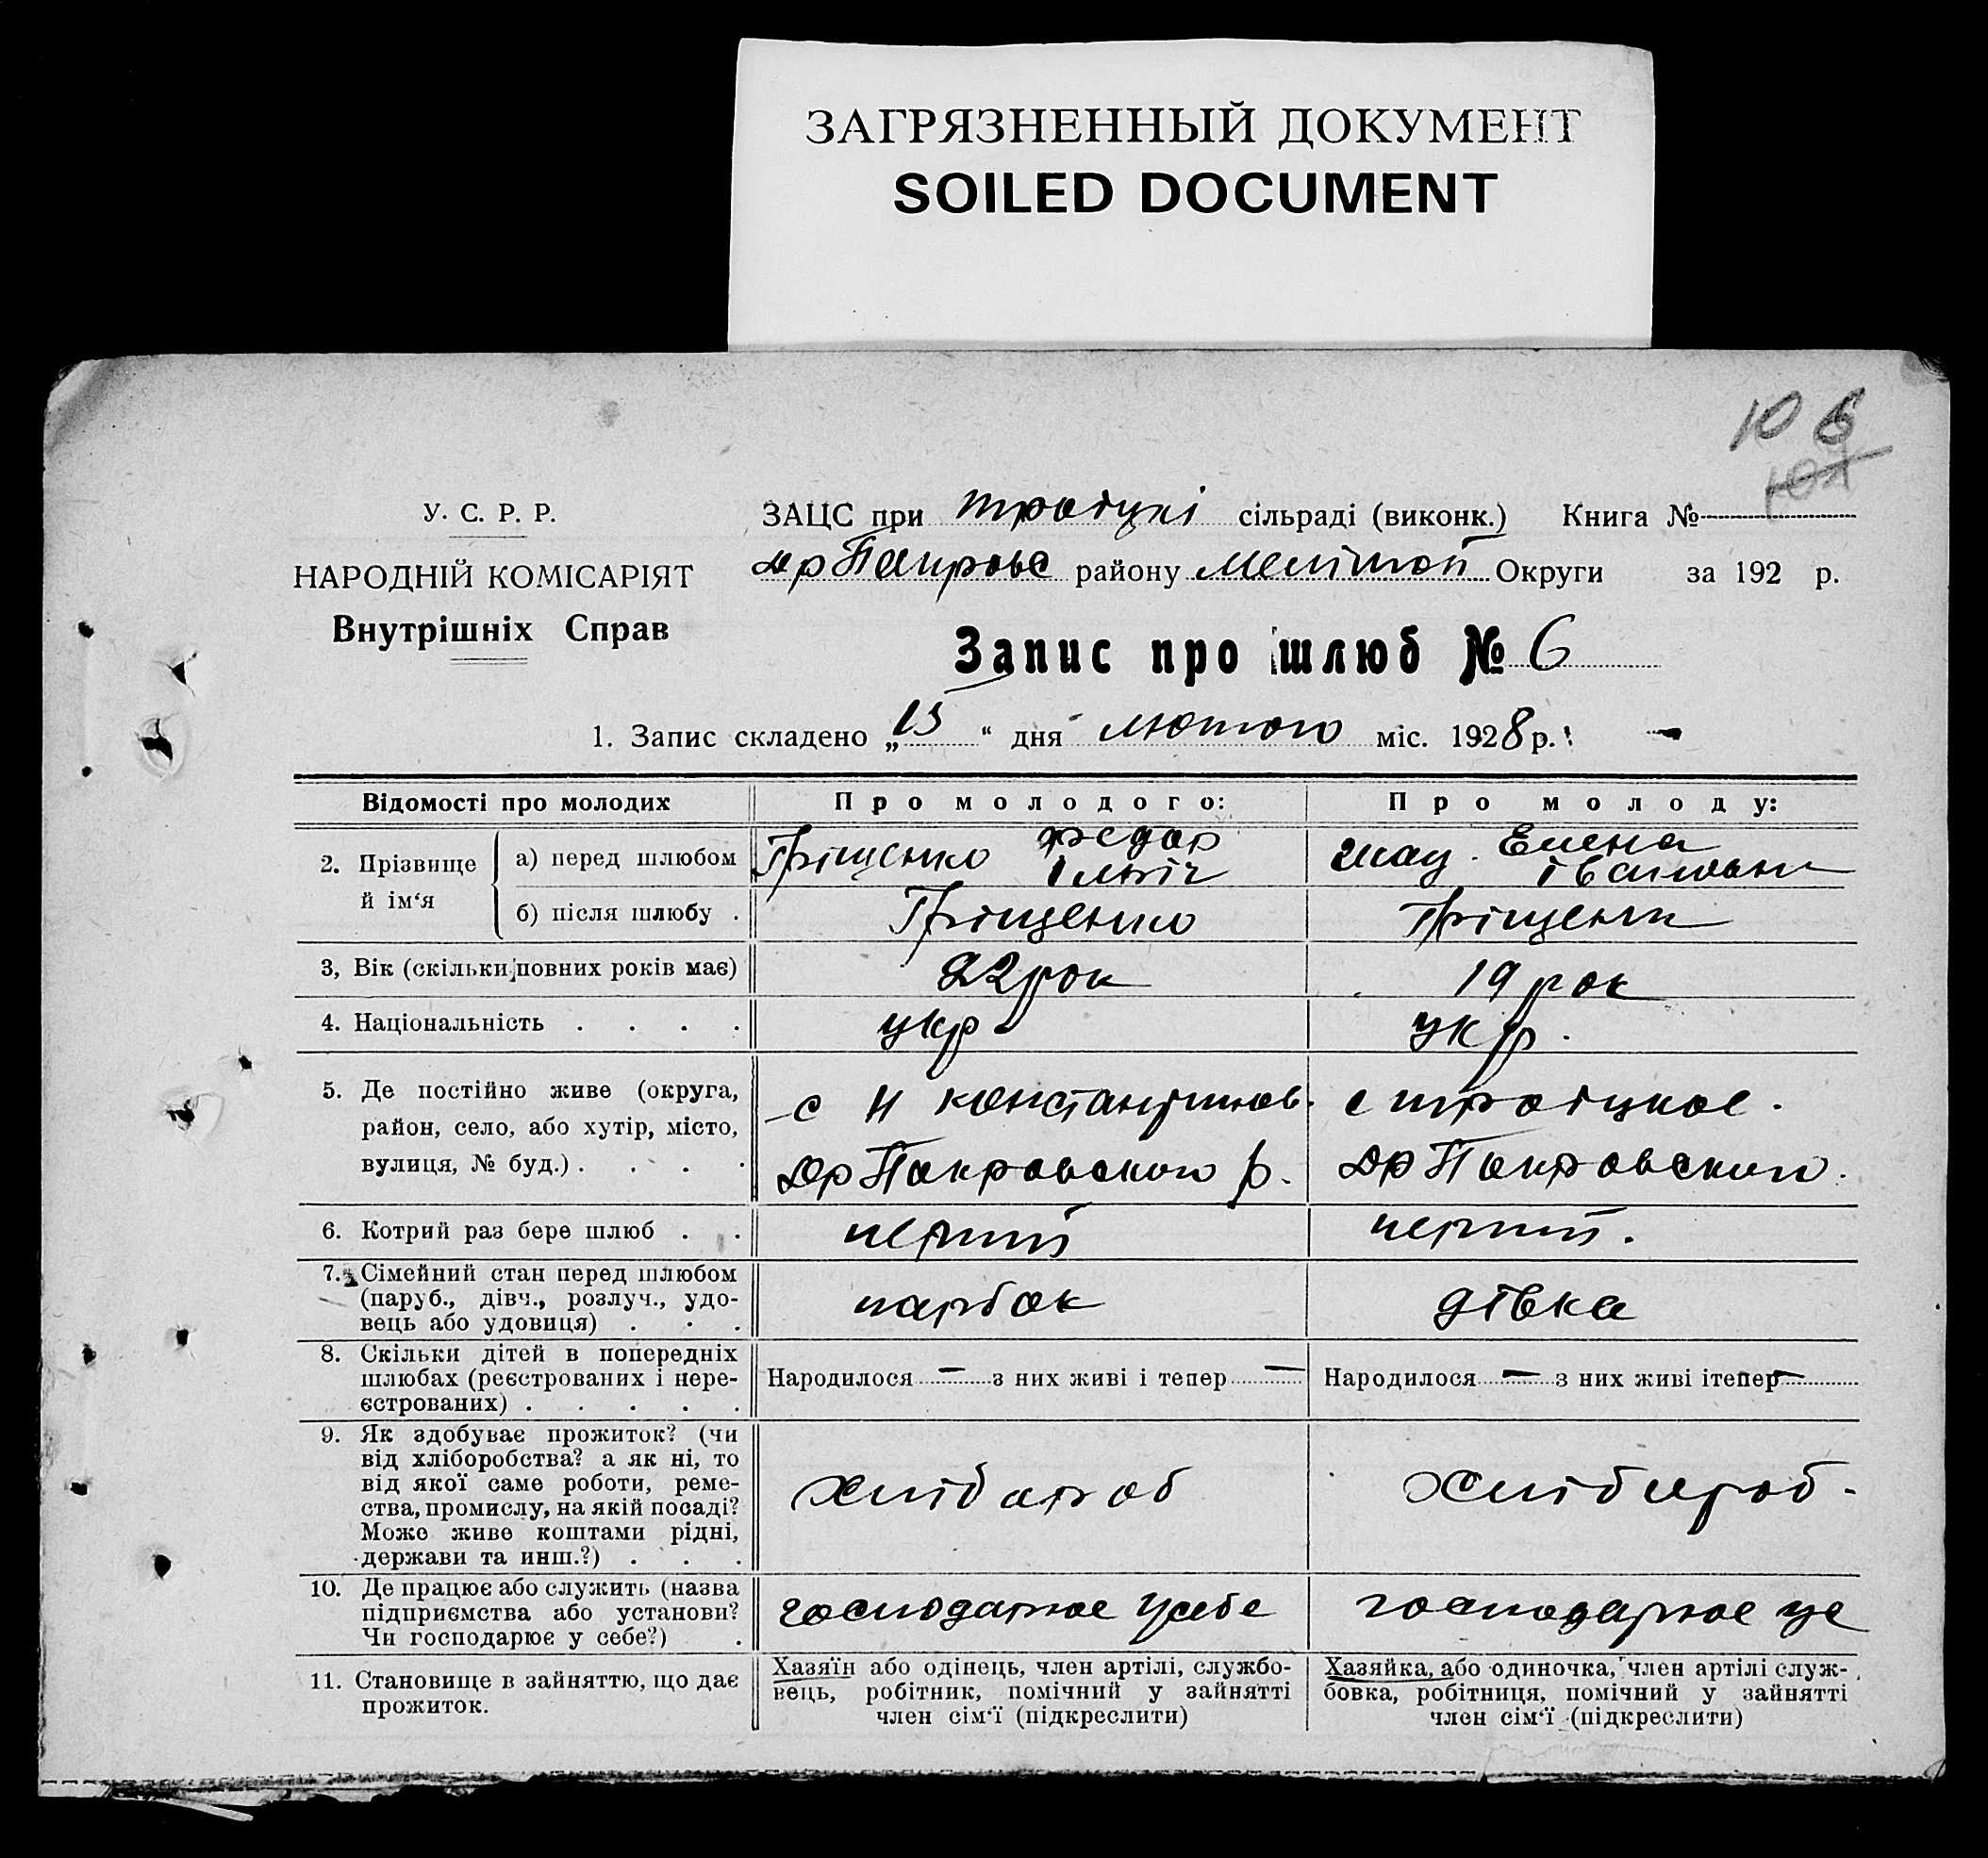 ЗАГРЯЗНЕННЫЙ ДОКУМЕНТ
SOILED DOCUMENT
10 6
101
У. С. Р. Р.
НАРОДНІЙ КОМІСАРІЯТ
Внутрішніх Справ
ЗАЦС при троіцкі сільраді (виконк.) Книга №
др Покровс району Мелітоп Округи за 192 р.
Запис про шлюб № 6
1. Запис складено „15“ дня лютого міс. 1928 р.
Відомості про молодих Про молодого: Про молоду:
2. Прізвище й ім‘я
а) перед шлюбом Гріщенко Федор Ільіч Елена
б) після шлюбу . Гріщенко Гріщенк
3, Вік (скільки повних років має) 22 рок 19 рок
4. Національність . . . . укр укр.
5. Де постійно живе (округа,
район, село, або хутір, місто,
вулиця, № буд.) . . . .
с Н константинов.
Др Покровского р.
с троіцкое.
Др Покровского.
6. Котрий раз бере шлюб . . перший перший.
7. Сімейний стан перед шлюбом
(паруб., дівч., розлуч., удо-
вець або удовиця) . . .
парбок дівка
8. Скільки дітей в попередніх
шлюбах (реєстрованих і нере-
єстрованих) . . . . .
Народилося — з них живі і тепер —
Народилося — з них живі ітепер —
9. Як здобуває прожиток? (чи
від хліборобства? а як ні, то
від якої саме роботи, реме-
ства, промислу, на якій посаді?
Може живе коштами рідні,
держави та инш.?) . . .
хлібороб хлібороб.
10. Де працює або служить (назва
підприємства або установи?
Чи господарює у себе?) .
господарює усебе господарює усе
11. Становище в зайняттю, що дає
прожиток.
Хазяїн або одінець, член артілі, службо-
вець, робітник, помічний у зайнятті
член сім‘ї (підкреслити)
Хазяйка, або одиночка, член артілі служ-
бовка, робітниця, помічний у зайнятті
член сім‘ї (підкреслити)